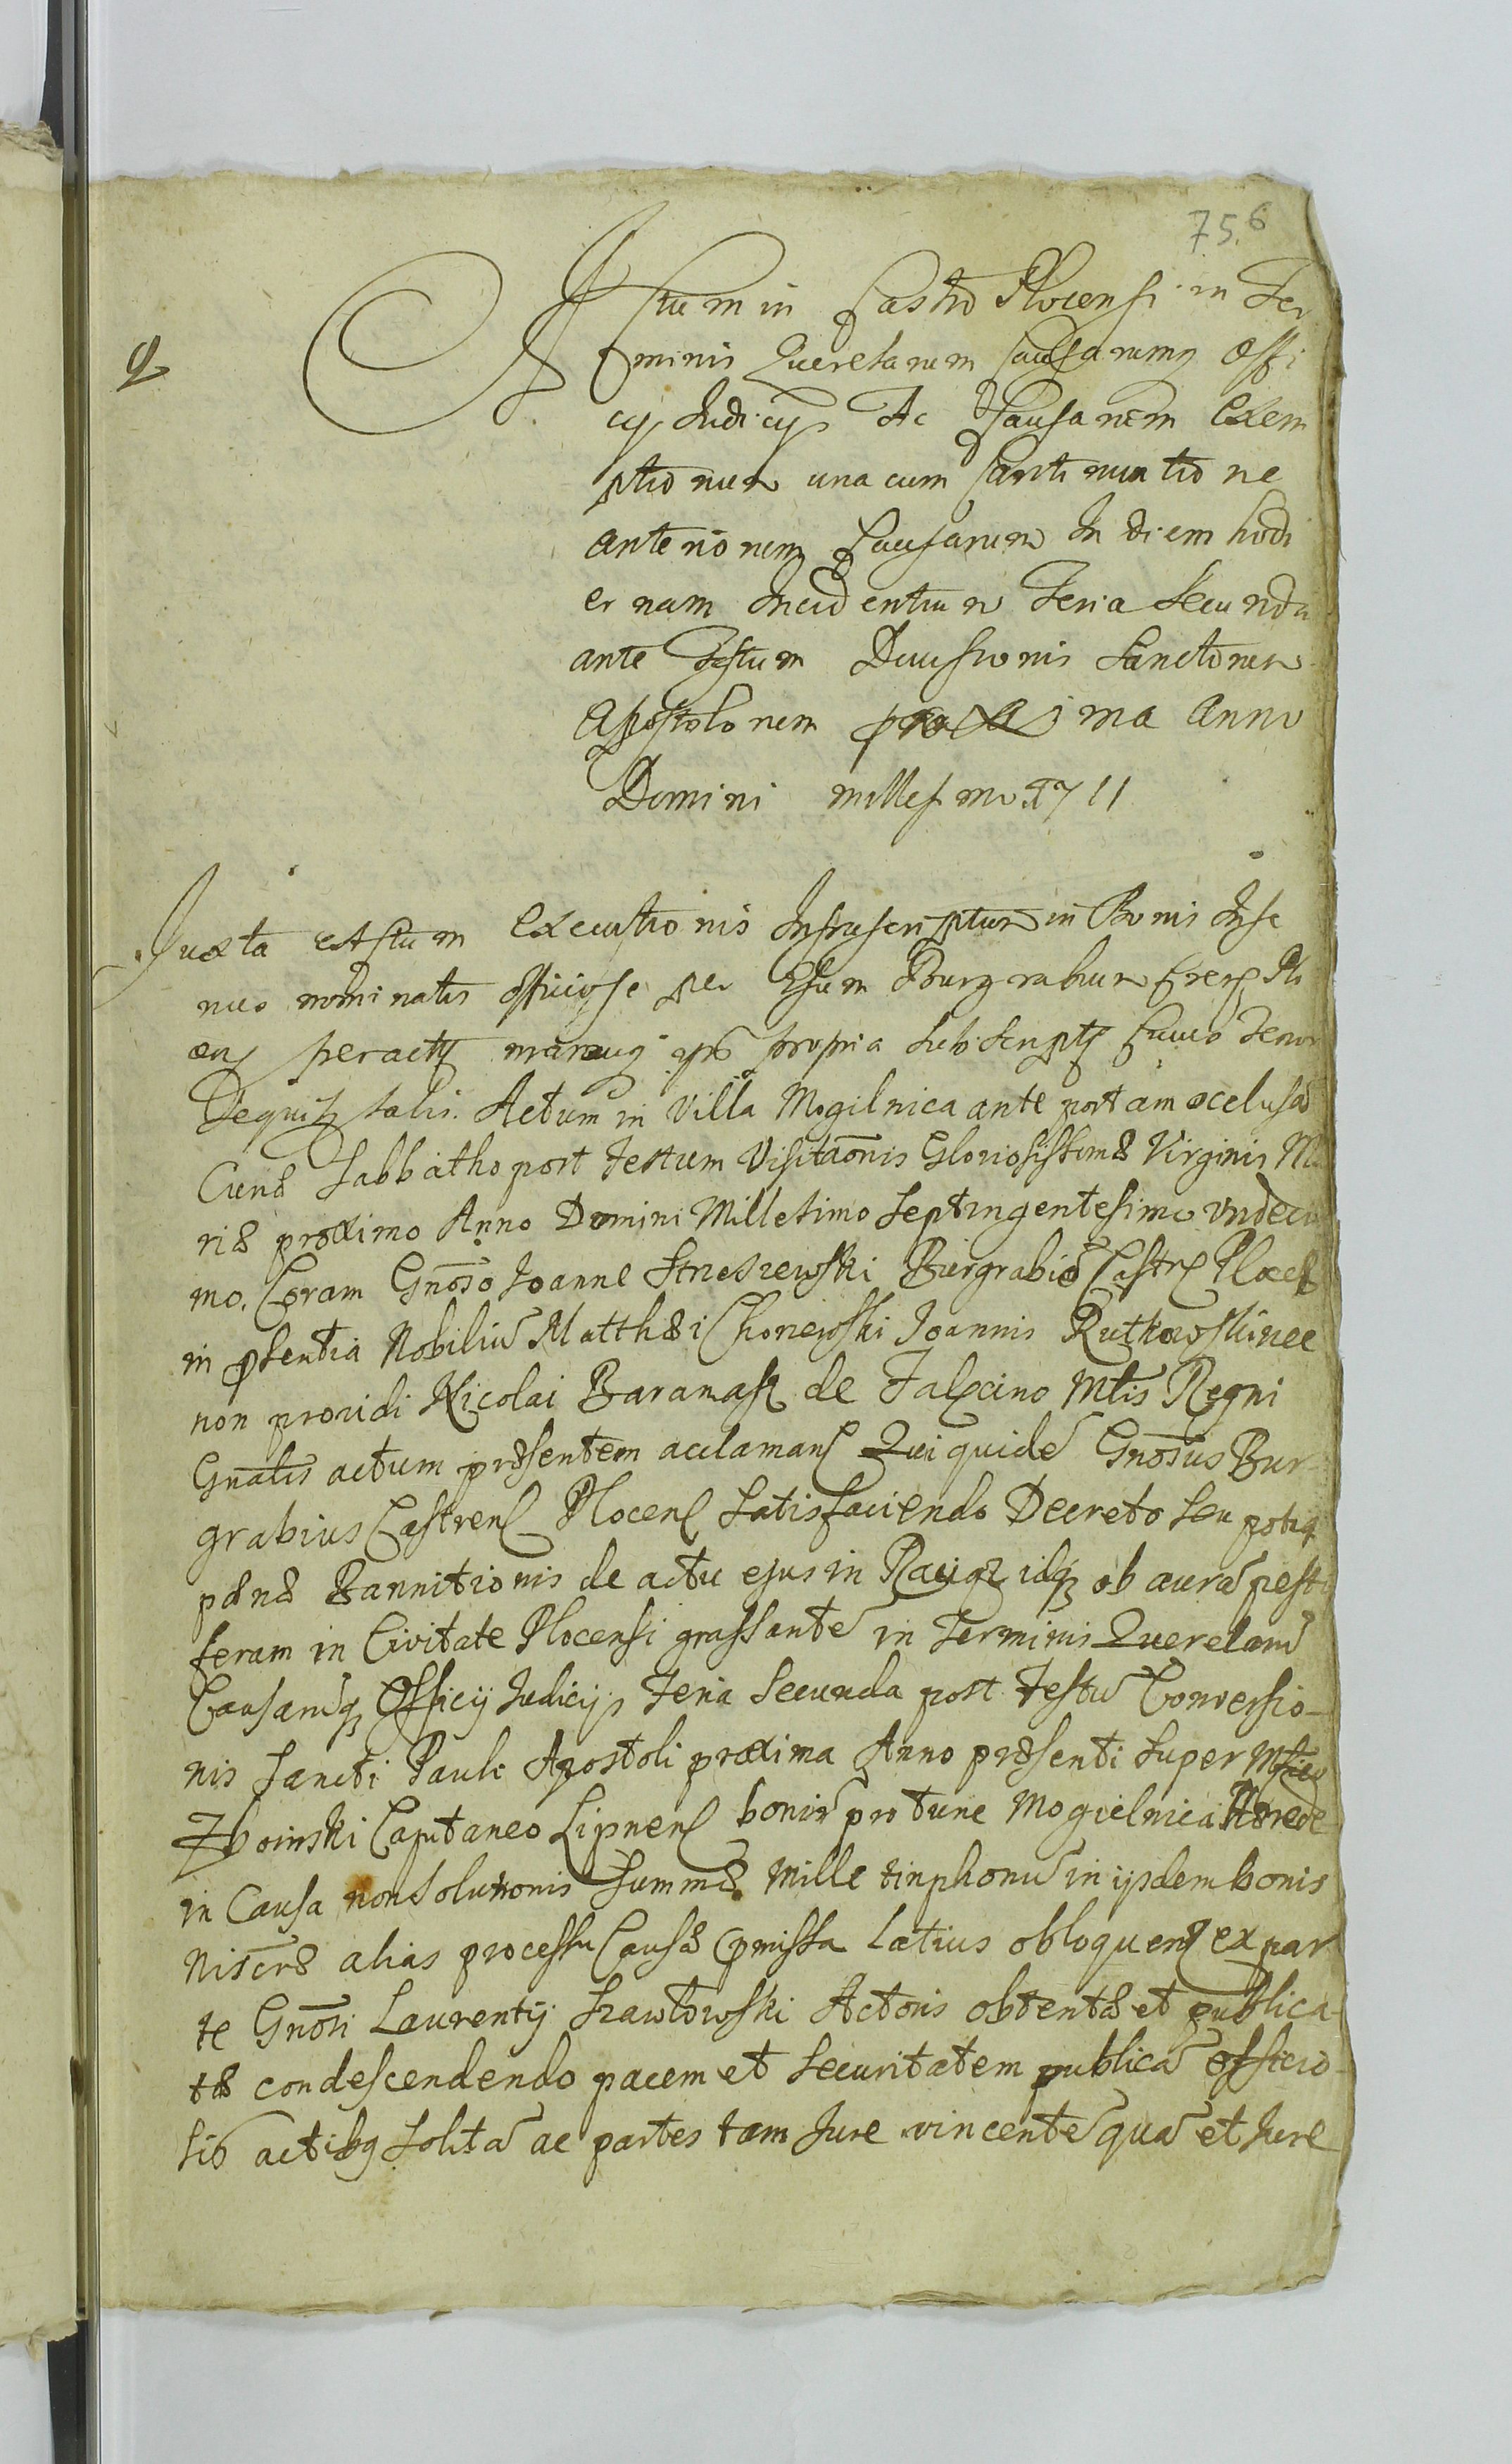 75.6
Actum in Castro Plocensi in Ter
minis Querelarum Causarumq Offi
cij Iudicijs Ac Causarum Exem
ptionum una cum Continuatione
anteriorum Causarum In diem hodi
ernam Incidentium Feria Secunda
ante Festum Divisionis Sanctorum
Apostolorum proxima Anno
Domini millesimo 1711
Iuxta Actum Executionis Infrascriptum in Bonis Infe
rius nominatis officiose per Burgrabium
peracty propria Subscripty cuius Tenor
Sequitz talis. Actum in Villa Mogilnica ante portam occlusā
Curiæ Sabbatho post Festum Visitaōnis Gloriosissimæ Virginis Ma
riæ proximo Anno Domini Millesimo Septingentesimo Undeci
mo. Coram Gnōso Ioanne Streszewski Burgrabio Castr Plocen
in pſentia Nobiliū Matthæi Chorzewski Ioannis Rutkowski nec
non providi Nicolai Baranask de Falxcino Mtis Regni
Gnālis actum præsentem acclaman Qui quidē Gnōsus Bur-
grabius Castren Plocen Satisfaciendo Decreto seu potiq
pænæ Bannitionis de actu ejus in idq ob aurā pesti
feram in Civitate Plocensi grassantē in Terminis Querelarū
Causarūq Officij Iudicijs Feria Secunda post Festū Conversio-
nis Sancti Pauli Apostoli proxima Anno præsenti super Mfico
Zboinski Capitaneo Lipnen bonor pro tunc Mogielnica Hærede
in Causa non Solutionis Summæ Mille tinphonū in ijsdem bonis
alias processu Causæ pmissa Latius obloquen ex par
te Gnōsi Laurentij Szawłowski Actoris obtentæ et publica-
tæ condescendendo pacem et Securitatem publicā officio-
sis actibq Solitā ac partes tam Iure vincentē quā et Iure